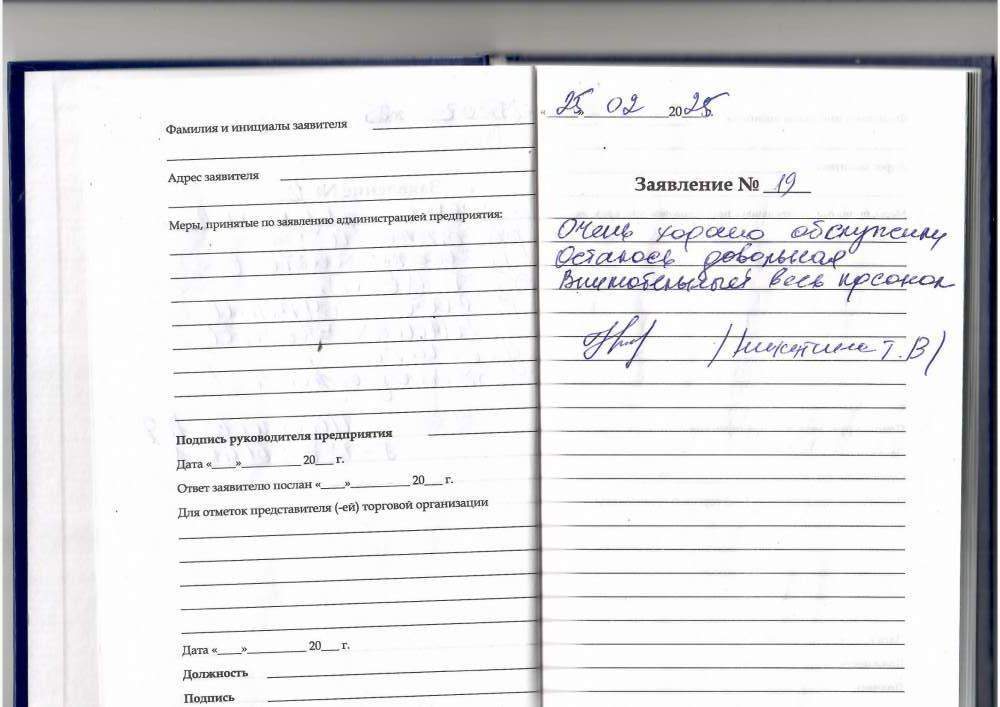 Фамилия и инициалы заявителя
Адрес заявителя
Меры, принятые по заявлению администрацией предприятия:
Подпись руководителя предприятия
Дата «____»__________ 20___ г.
Ответ заявителю послан «____»__________ 20___ г.
Для отметок представителя (-ей) торговой организации
Дата «____»__________ 20___ г.
Должность
Подпись
«25» 02 2025г.
Заявление № 19
Очень хорошо обслужили
Осталось довольная
Внимательный весь прсонал
/Никитина Т.В/